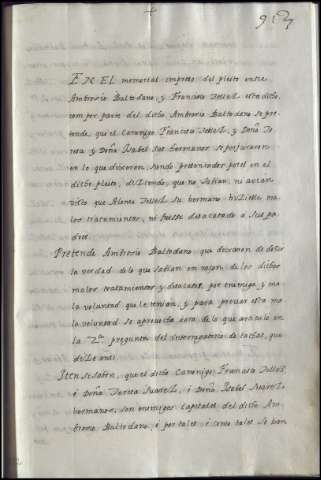 EN EL memorial impreso del pleito entre
Ambrosio Baltodano, y Francisco Tellez
tam por parte del dicho Ambrosio Baltodano se pre-
tende, que el Canonigo Francisco Tellez, y Doña Te-
resa y Doña Isabel sus hermanos se perjuraron
en lo que dixeron, siendo presentados por el en el
dicho pleito, diziendo, que no savian, ni avian
visto que Alonso Tellez su hermano hiziesse ma-
los tratamientos, ni fuesse desacatado a sus pa-
dres.
Pretende Ambrosio Baltodano que dexaron de dezir
la verdad de lo que savian en razon de los dichos
malos tratamientos y desacatos, por enemiga, y ma-
la voluntad que le tenian, y para provar esta ma-
la voluntad se aprovecha de lo que articulo en
la 2ª pregunta del interrogatorio de tachas, que
dize ansi
Iten si saben, que el dicho Canonigo Francisco Tellez,
i Doña Teresa Suarez, i Doña Isabel Suarez
hermanos, son enemigos capitales del dicho Am-
brosio Baltodano, i por tales i como tales se han